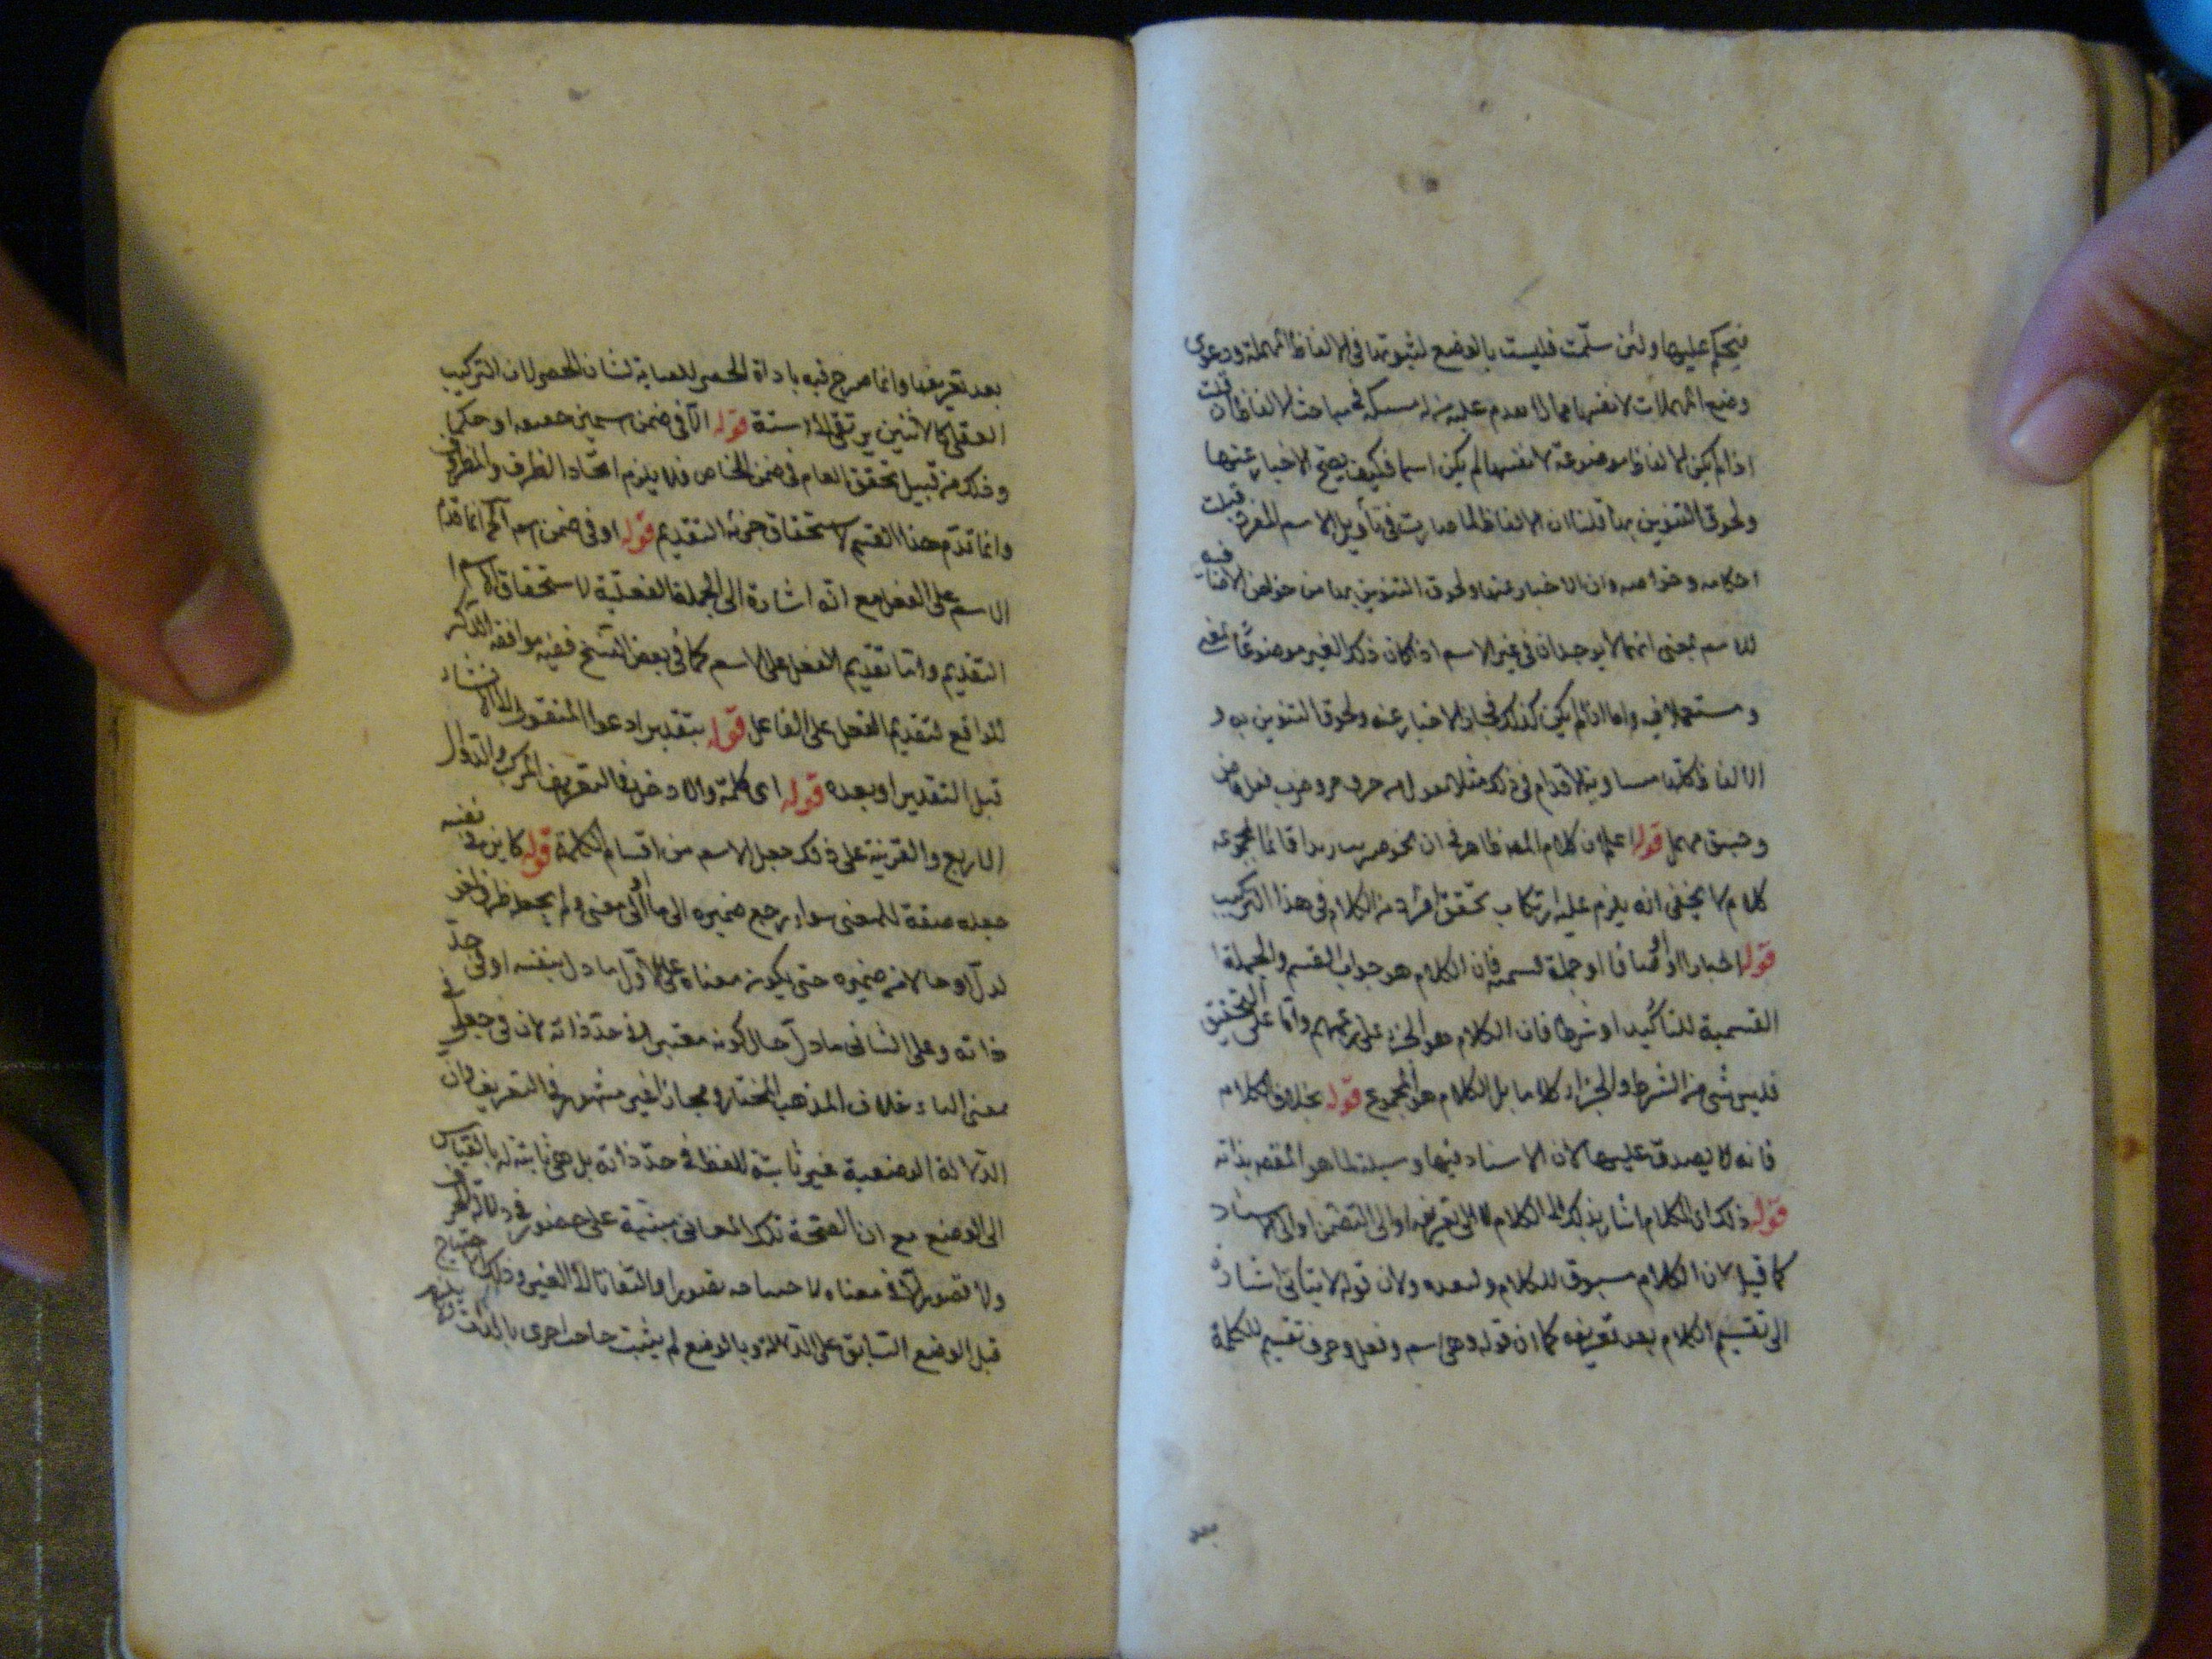 فيحكم عليها ولئن سلّمت فليست بالوضع لثبوتها في الالفاظ المهملة ودعوى
وضع المهملات لانفسها مما لا يقدم عليه من له مسكة في مباحث الالفاظ قلت
اذا لم يكن الالفاظ موضوعة لانفسها لم يكن اسما فكيف يصح الاخبار عنها
ولحوق التنوين بها قلنا ان الالفاظ لما صارت في تأويل الاسم المفرد قبلت
احكامه وخواصه وان الاخبار عنها ولحوق التنوين بها من خواص
للاسم بمعنى انهما لا يوجدان في غير الاسم اذا كان ذلك الغير موضوعا
ومستعملا فيه واما اذا لم يكن كذلك فجاز الاخبار عنه ولحوق التنوين به و
الالفاظ كلها متساوية الاقدام في ذلك مثلا يقال من حرف جر وضرب فعل ماض
وجسق مهمل قوله اعلم ان كلام المص ظاهر في ان نحو ضربت زيدا قائما بمجموعه
كلام لا يخفى انه يلزم عليه ارتكاب تحقق افراد من الكلام في هذا التركيب
قوله اخبارا او اوصافا او جملة قسمية فان الكلام هو جواب القسم والجملة
القسمية للتأكيد او شرطا فان الكلام هو الجزاء على زعمهم واما على التحقيق
فليس شئ من الشرط والجزاء كلاما بل الكلام هو المجموع قوله بخلاف الكلام
فانه لا يصدق عليها لان الاسناد فيها وسيلة لما هو المقصود بذاته
قوله ذلك اى الكلام اشار بذلك الى الكلام لا الى تعريفه او الى التضمن او الى الاسناد
كما قيل لان الكلام مسوق للكلام ولبعده ولان قوله لا يتأتى اشارة
الى تقسيم الكلام بعد تعريفه كما ان قوله وهي اسم وفعل وحرف تقسيم للكلمة
بعد
بعد تعريفها وانما صرح فيه باداة الحصر للعناية لشأن الحصر لان التركيب
العقلى كالاثنين يرتقى الى ستة قوله الا في ضمن اسمين حقيقة او حكما
وذلك من قبيل تحقق العام في ضمن الخاص فلا يلزم اتحاد الظرف والمظروف
وانما قدّم هذا القسم لاستحقاق جزئه التقديم قوله او في ضمن اسم انما قدّم
الاسم على الفعل مع انه اشارة الى الجملة الفعلية لاستحقاق الاسم
التقديم واما تقديم الفعل على الاسم كما في بعض النسخ ففيه موافقة الذكر
للواقع لتقديم الفعل على الفاعل قوله بتقدير ادعوا المنقول الى الانشاء
قبل التقدير او بعده قوله اى كلمة والا دخل في التعريف المركب والدوال
الاربع والقرينة على ذلك جعل الاسم من اقسام الكلمة قوله كاين في نفسه
جعله صفة للمعنى سواء رجع ضميره الى ما او الى معنى ولم يجعله ظرفا لغو
لدلّ او حالا من ضميره حتى يكون معناه على الاول ما دل بنفسه او في حدّ
ذاته وعلى الثانى ما دل حال كونه معتبرا في حد ذاته لان في جعل في
بمعنى الباء خلاف المذهب المختار ومجازا غير مشهور في التعريف ولان
الدلالة الوضعية غير ثابتة للفظ في حدّ ذاته بل هى ثابتة له بالقياس
الى الوضع مع ان الصحة تذكر المعانى مبنية على حضور في دلالة الحرف
ولا قصور الا في معناه لاحتياجه تصورا والتفاتا الى الغير وذلك الاحتياج
قبل الوضع السابق على الدلالة وبالوضع لم يثبت حاجة اخرى بالذات